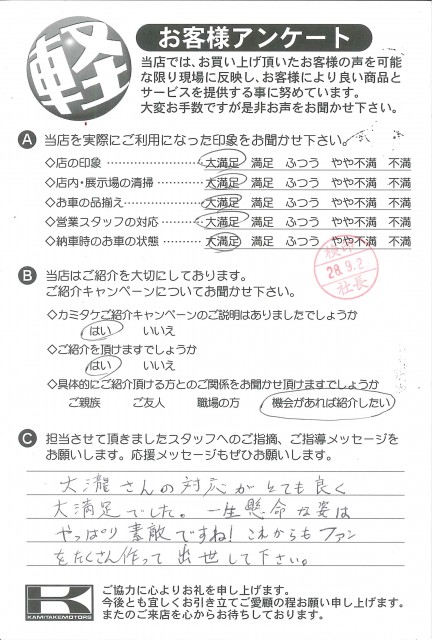 軽
お客様アンケート
当店では、お買い上げ頂いたお客様の声を可能
な限り現場に反映し、お客様により良い商品と
サービスを提供する事に努めています。
大変お手数ですが是非お声をお聞かせ下さい。
A 当店を実際にご利用になった印象をお聞かせ下さい。
◇店の印象 ………………… 大満足 満足 ふつう やや不満 不満
◇店内・展示場の清掃 ……… 大満足 満足 ふつう やや不満 不満
◇お車の品揃え ……………… 大満足 満足 ふつう やや不満 不満
◇営業スタッフの対応 ……… 大満足 満足 ふつう やや不満 不満
◇納車時のお車の状態 ……… 大満足 満足 ふつう やや不満 不満
28.9.2
社長
B 当店はご紹介を大切にしてあります。
ご紹介キャンペーンについてお聞かせ下さい。
◇カミタケご紹介キャンペーンのご説明はありましたでしょうか
はい いいえ
◇ご紹介を頂けますでしょうか
はい いいえ
◇具体的にご紹介頂ける方とのご関係をお聞かせ頂けますでしょうか
ご親族 ご友人 職場の方 機会があれば紹介したい
C 担当させて頂きましたスタッフへのご指摘、ご指導メッセージを
お願いします。応援メッセージもぜひお願いします。
大瀧さんの対応がとても良く
大満足でした。一生懸命な姿は
やっぱり素敵ですね!これからもファン
をたくさん作って出世して下さい。
K
KAMITAKEMOTORS
ご協力に心よりお礼を申し上げます。
今後とも宜しくお引き立てご愛顧の程お願い申し上げます。
またのご来店を心からお待ちしております。